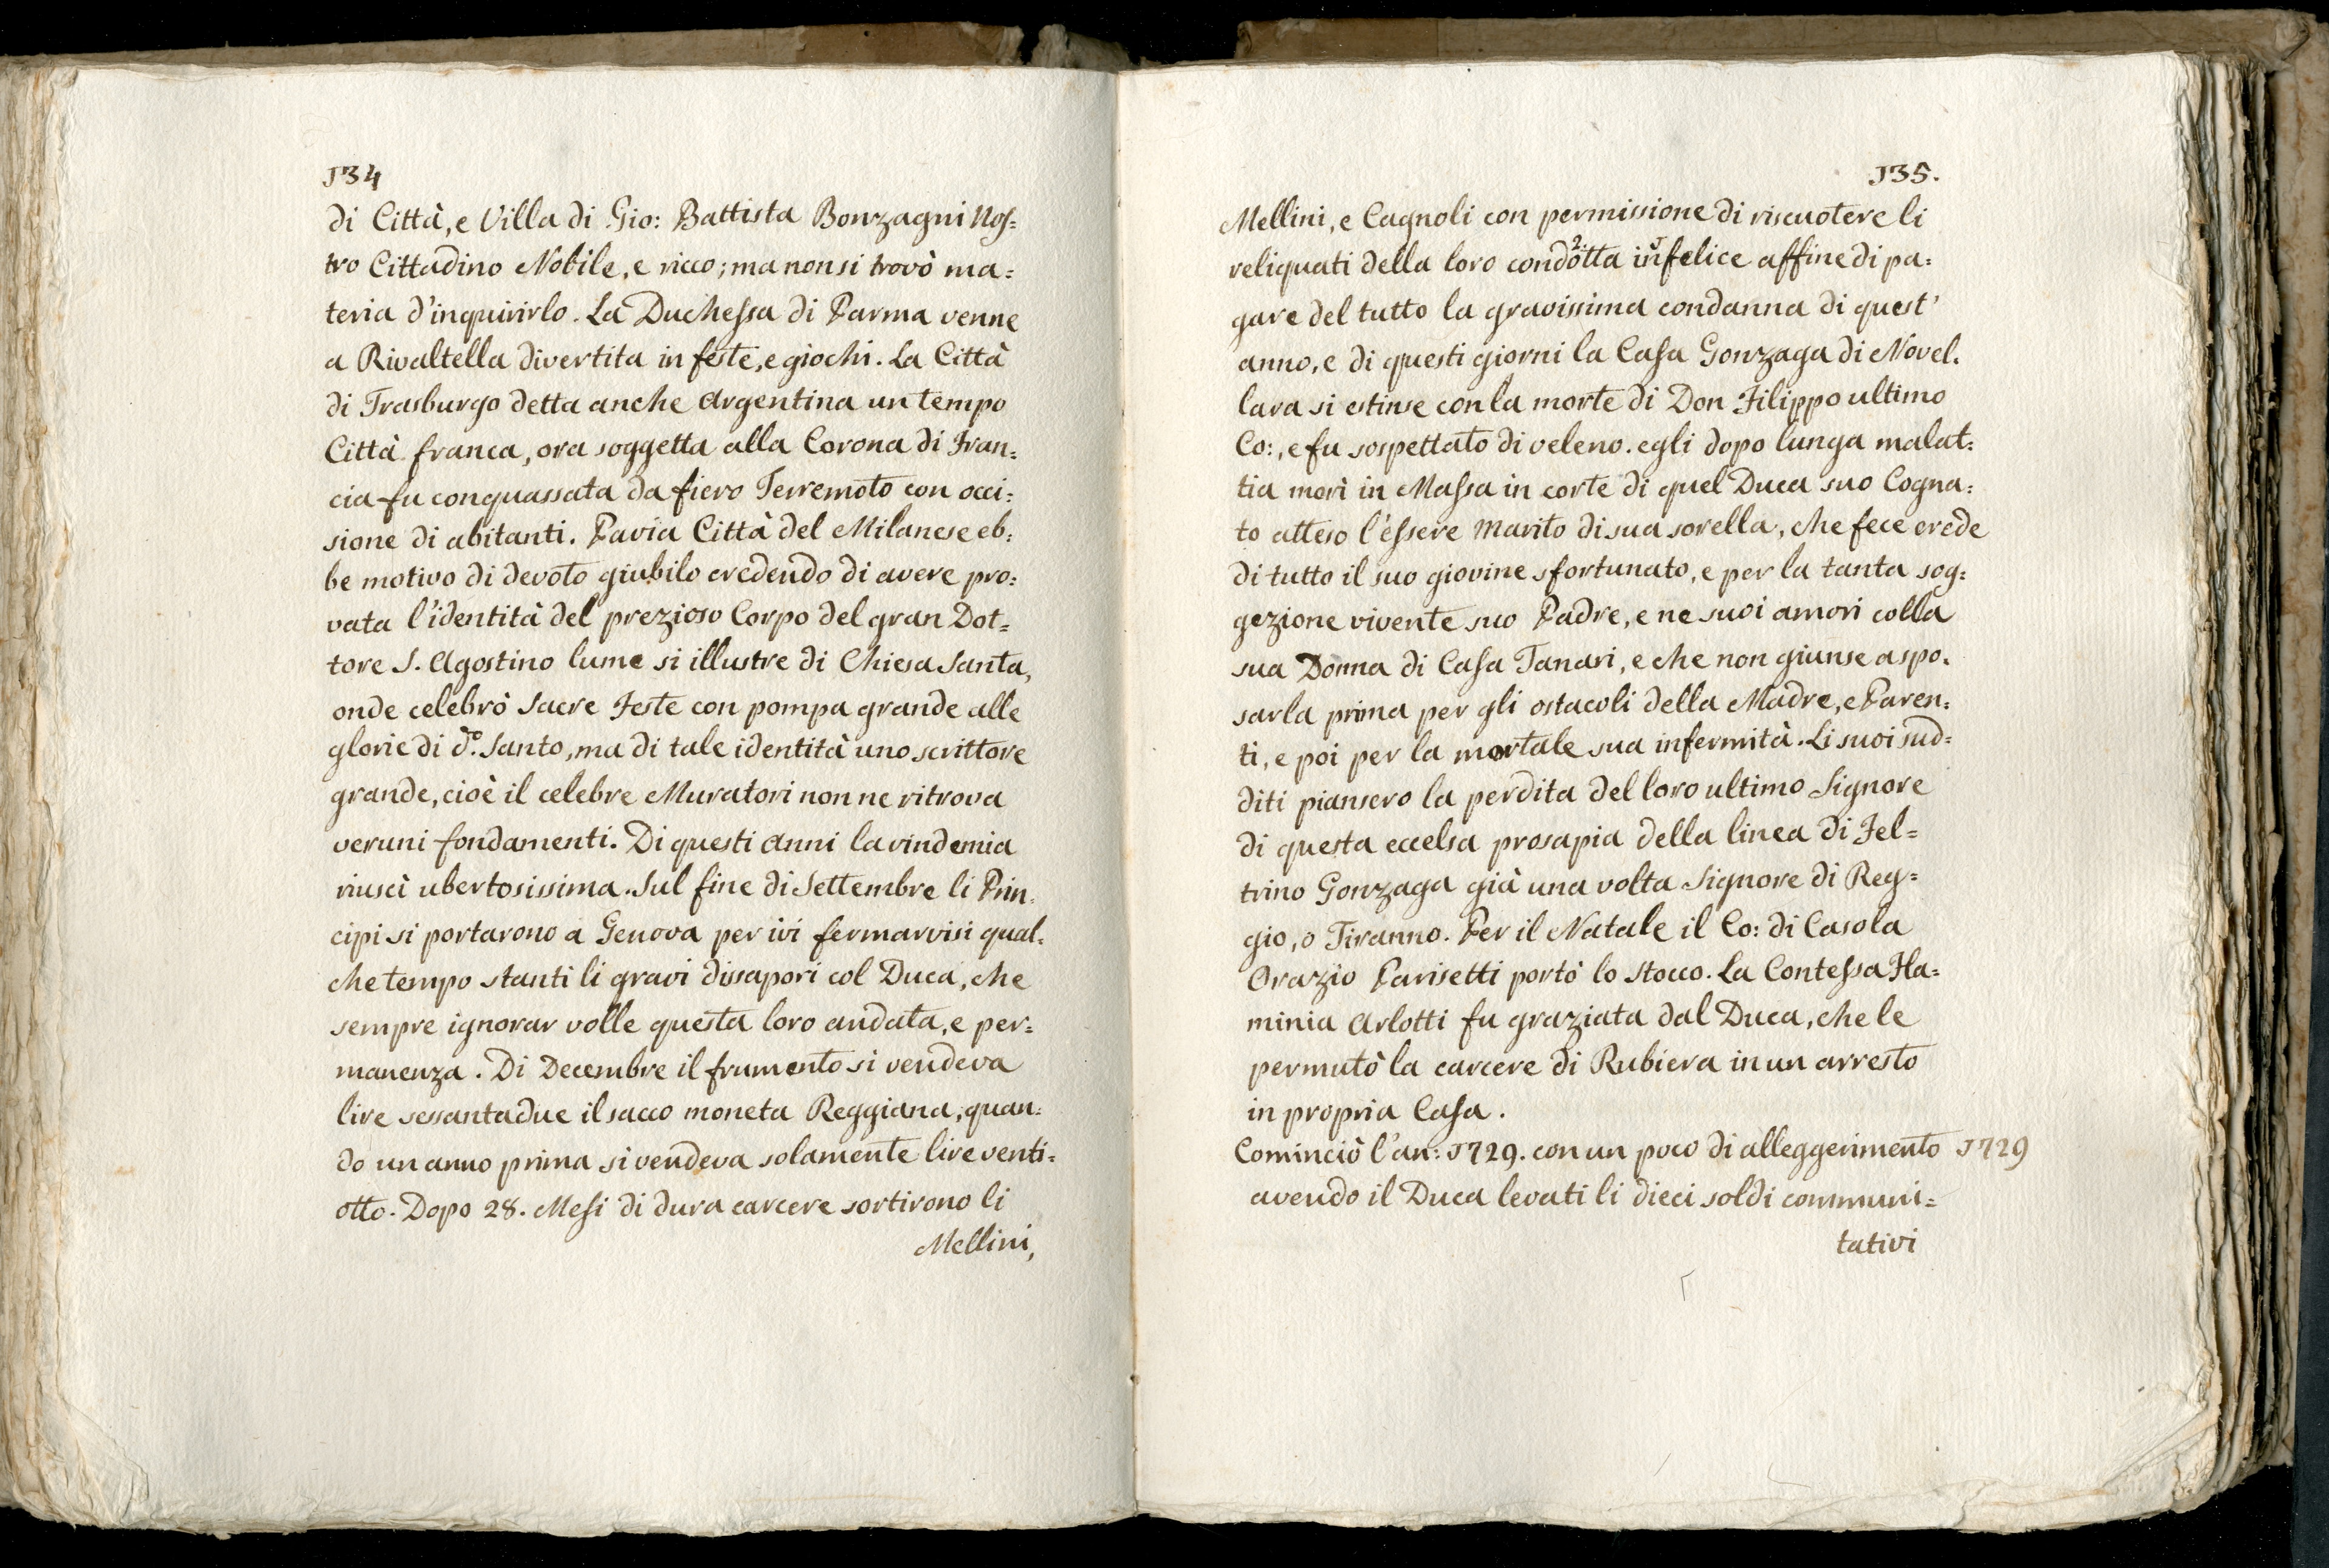 134
di Città, e Villa di Gio: Battista Bonzagni Nos=
tro Cittadino Nobile, e ricco; ma non si trovò ma=
teria d'inquirirlo. La Duchessa di Parma venne
a Rivaltella divertita in feste, e giochi. La Città
di Trasburgo detta anche Argentina un tempo
Città franca, ora soggetta alla Corona di Fran=
cia fu conquassata da fiero Terremoto con occi=
sione di abitanti. Pavia Città del Milanese eb=
be motivo di devoto giubilo credendo di avere pro=
vata l'identità del prezioso Corpo del gran Dot=
tore S. Agostino lume si illustre di Chiesa Santa,
onde celebrò Sacre Feste con pompa grande alle
glorie di d.º Santo, ma di tale identità uno scrittore
grande, cioè il celebre Muratori non ne ritrova
veruni fondamenti. Di questi anni la vindemia
riuscì ubertosissima. Sul fine di Settembre li Prin=
cipi si portarono a Genova per ivi fermarvisi qual=
che tempo stanti li gravi dissapori col Duca, che
sempre ignorar volle questa loro andata, e per=
manenza. Di Decembre il frumento si vendeva
lire sessantadue il sacco moneta Reggiana, quan=
do un anno prima si vendeva solamente lire venti=
otto. Dopo 28. Mesi di dura carcere sortirono li
Mellini,
135.
Mellini, e Cagnoli con permissione di riscuotere li
reliquati della loro condotta 2. infelice 1 affine di pa=
gare del tutto la gravissima condanna di quest'
anno, e di questi giorni la Casa Gonzaga di Novel=
lara si estinse con la morte di Don Filippo ultimo
Co:, e fu sospettato di veleno. egli dopo lunga malat=
tia morì in Massa in corte di quel Duca suo Cogna=
to atteso l'essere marito di sua sorella, che fece erede
di tutto il suo giovine sfortunato, e per la tanta sog=
gezione vivente suo Padre, e ne suoi amori colla
sua Donna di Casa Tanari, e che non giunse a spo=
sarla prima per gli ostacoli della Madre, e Paren=
ti, e poi per la mortale sua infermità. Li suoi sud=
diti piansero la perdita del loro ultimo Signore
di questa eccelsa prosapia della linea di Fel=
trino Gonzaga già una volta Signore di Reg=
gio, o Tiranno. Per il Natale il Co: di Casola
Orazio Parisetti portò lo stocco. La Contessa Fla=
minia Arlotti fu graziata dal Duca, che le
permutò la carcere di Rubiera in un arresto
in propria Casa.
Cominciò l'an: 1729. con un poco di alleggerimento 1729
avendo il Duca levati li dieci soldi communi=
tativi